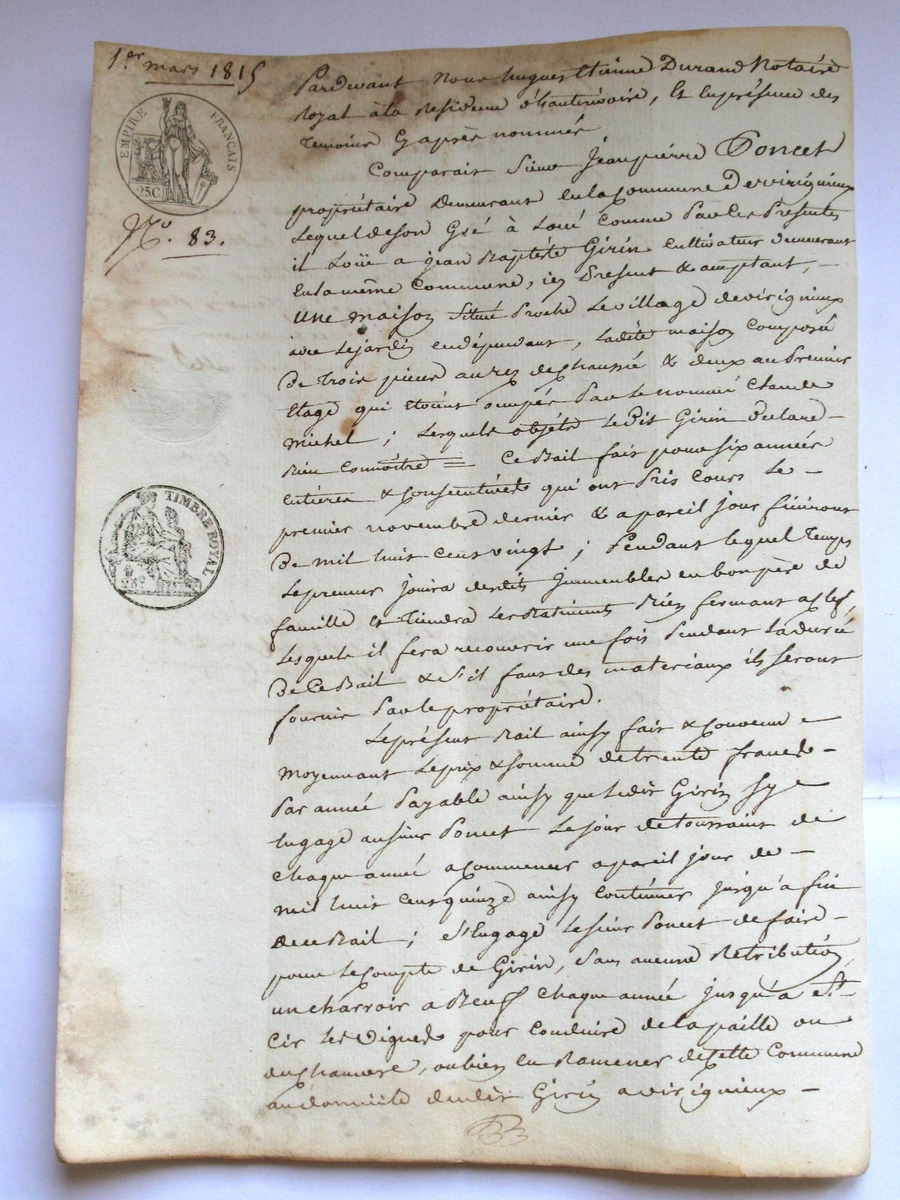 1.er mars 1815
EMPIRE FRANÇAIS
25C
N.o 83.
TIMBRE ROYAL
Pardevant Nous hugues Etienne Durand Notaire
Royal à la Residence d'hauterivoire, Et en présence des
temoins Cy après nommés
Comparait Sieur Jean pierre Poncet
propriétaire Demeurant en la Commune De virigneux
Lequel de son Gré à Loué Comme Par Ces Presentes
il Loüe a jean Baptiste Girin Cultivateur Demeurant
En la même Commune, icy Present & acceptant,
une maison Située Proche Le village de virigneux
avec Le jardin en dépendant, Ladite maison Composée
De trois pieces au rez de chaussée & deux au Premier
Etage qui étoient occupés Par Le nommé Claude
Michel ; Lesquels objets Le dit Girin declare
Bien Connoitre = Ce Bail fait pour six années
Entières & Consecutives qui ont Pris Cours Le
premier novembre dernier & a pareil jour finiront
De mil huit cent vingt ; Pendant lequel Temps
Le preneur jouira desdits Immeubles en bon père de
famille Et Tiendra Les Batiments Bien fermant a Clef
Lesquels il fera recouvrir une fois Pendant La durée
De Ce Bail & S'il faut des materiaux ils seront
fournis Par le propriétaire.
Le présent Bail ainsy fait & Convenu
Moyennant Le prix & somme de trente francs
Par année Payable ainsy que Ledit Girin sy
Engage au sieur Poncet Le jour de toussaint de
Chaque année a Commencer a pareil jour de
mil huit Cent quinze ainsy Continuer jusqu'a fin
de ce Bail ; S'Engage Le sieur Poncet de faire
pour Le Compte de Girin, Sans aucune Retribution,
un charroir a Beuf Chaque année jusqu'a St
Cir Les Vignes pour Conduire de la paille ou
du Chanvre, ou bien en Ramener de Cette Commune
au domicile du dit Girin a virigneux